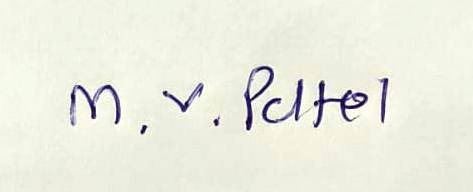 M. V. Patel